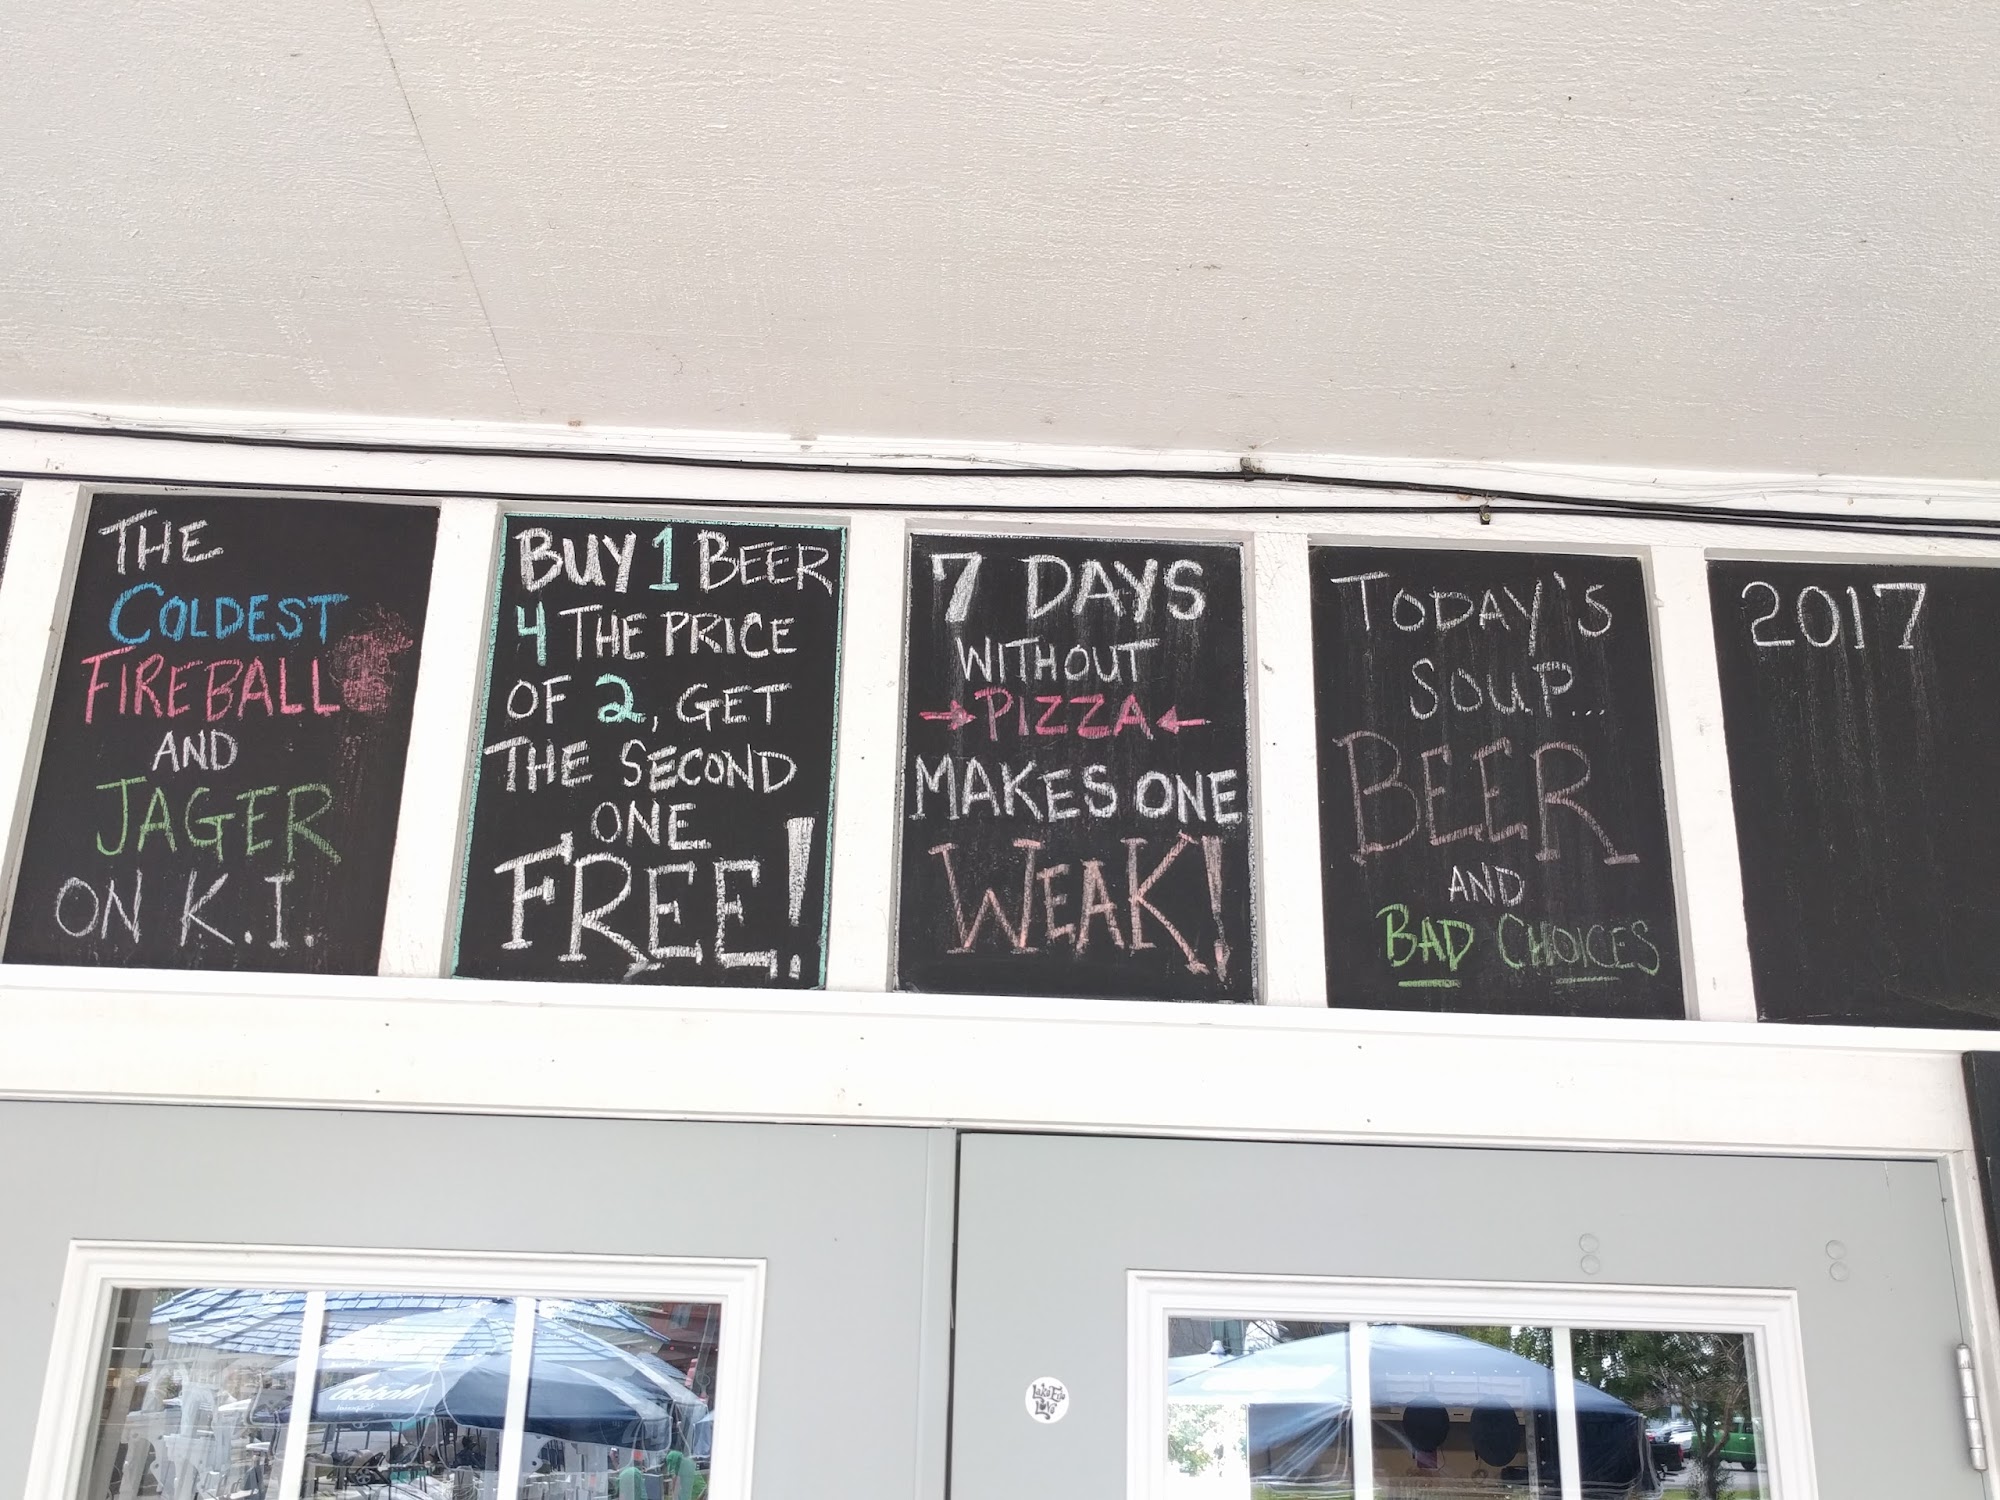 THE
COLDEST
FIREBALL
AND
JAGER
ON K.I.
BUY 1 BEER
4 THE PRICE
OF 2, GET
THE SECOND
ONE
FREE!
7 DAYS
WITHOUT
PIZZA
MAKES ONE
WEAK!
TODAY'S
SOUP...
BEER
AND
BAD CHOICES
2017
Lake Erie
Love
Modelo
Especial